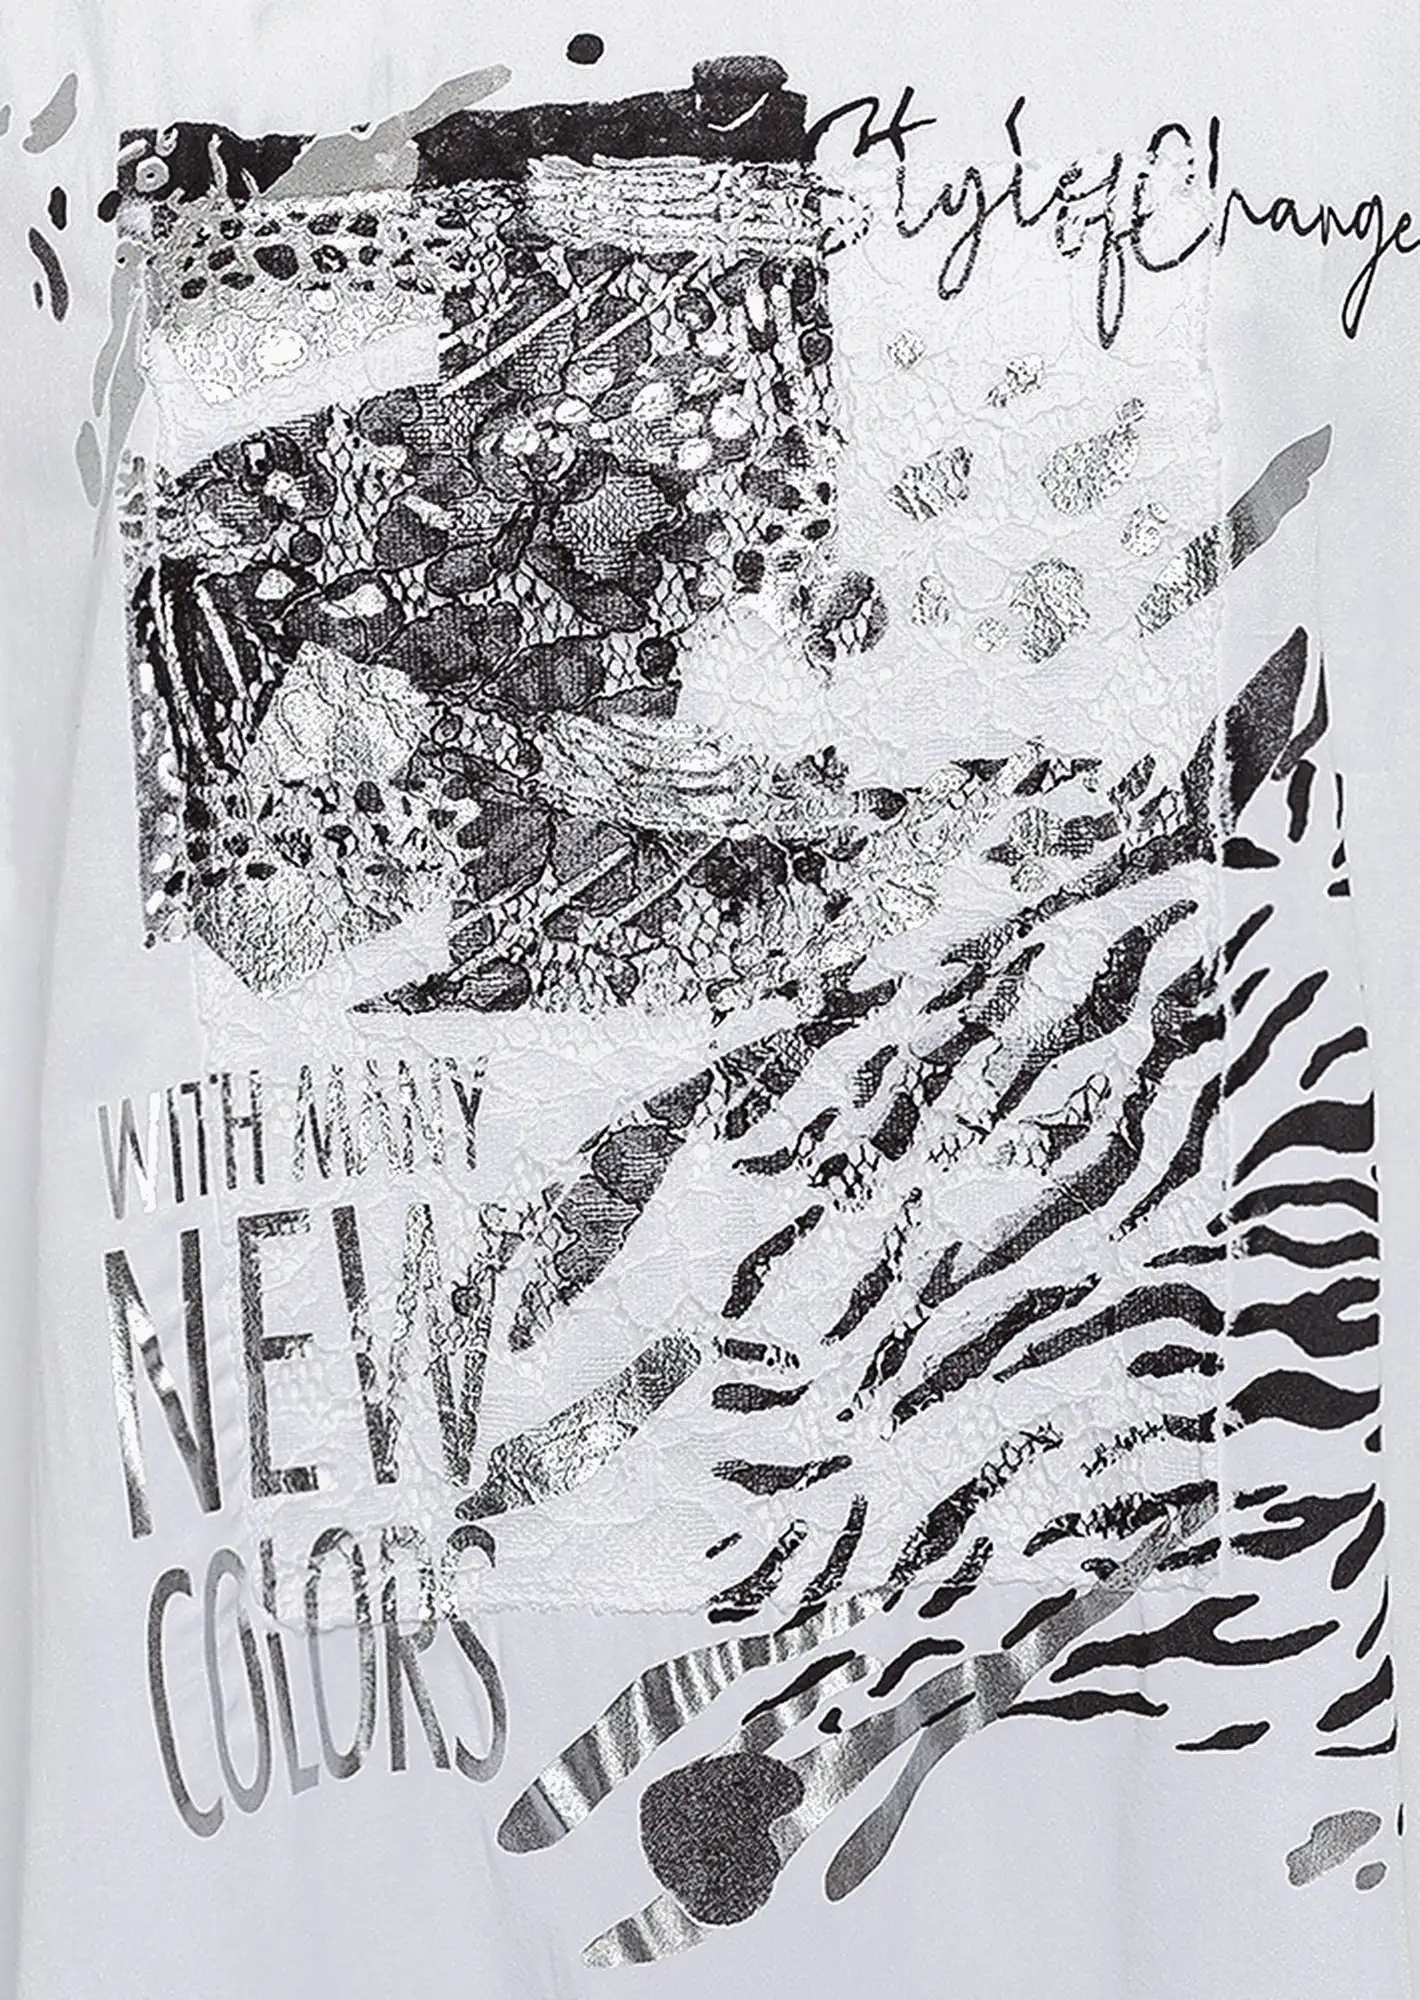 Style of Change
WITH MANY
NEW
COLORS